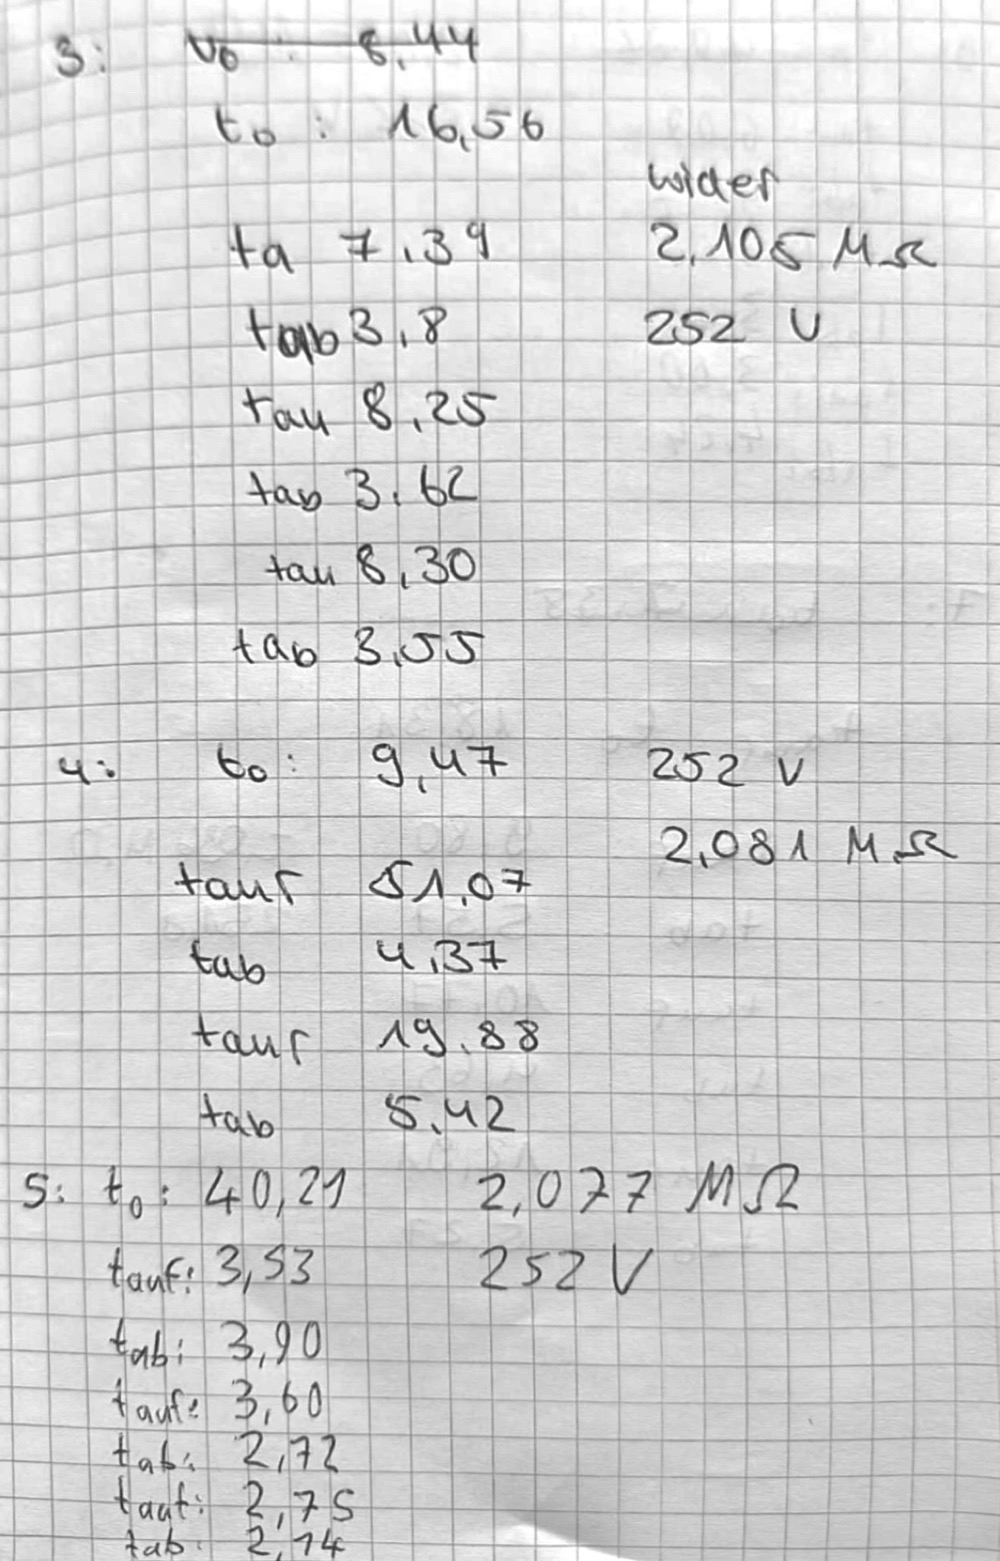 3: v₀ : 8,44
t₀ : 16,56
wider
ta 7,39 2,105 MΩ
tab 3,8 252 V
tau 8,25
tab 3,62
tau 8,30
tab 3,55
4: t₀: 9,47 252 V
2,081 MΩ
tauf 51,07
tab 4,37
tauf 19,88
tab 5,42
5: t₀: 40,21 2,077 MΩ
tauf: 3,53 252 V
tab: 3,90
tauf: 3,60
tab: 2,72
tauf: 2,75
tab: 2,14